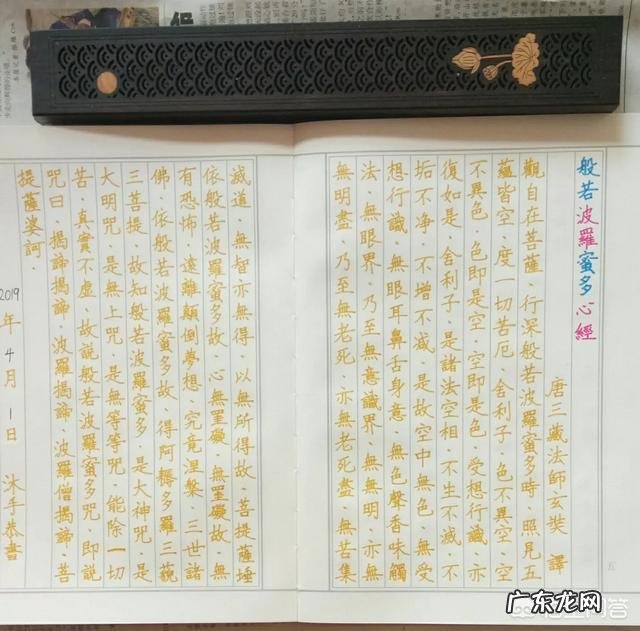 般若波羅蜜多心經
唐三藏法師玄奘 譯
觀自在菩薩·行深般若波羅蜜多時·照見五
蘊皆空·度一切苦厄·舍利子·色不異空·空
不異色·色即是空·空即是色·受想行識·亦
復如是·舍利子·是諸法空相·不生不滅·不
垢不净·不增不减·是故空中無色·無受
想行識·無眼耳鼻舌身意·無色聲香味觸
法·無眼界·乃至無意識界·無無明·亦無
無明盡·乃至無老死·亦無老死盡·無苦集
滅道·無智亦無得·以無所得故·菩提薩埵
依般若波羅蜜多故·心無罣礙·無罣礙故·無
有恐怖·遠離顛倒夢想·究竟涅槃·三世諸
佛·依般若波羅蜜多故·得阿耨多羅三藐
三菩提·故知般若波羅蜜多·是大神咒·是
大明咒·是無上咒·是無等等咒·能除一切
苦·真實不虛·故説般若波羅蜜多咒·即說
咒曰·揭諦揭諦·波羅揭諦·波羅僧揭諦·菩
提薩婆訶·
2019年4月1日 沐手恭書
广东龙网